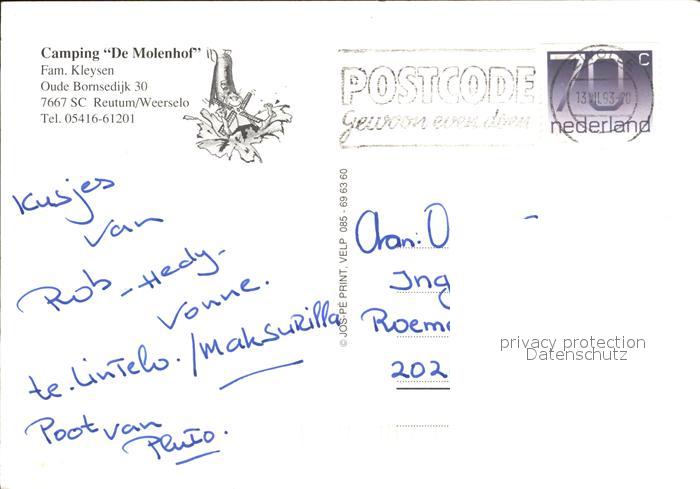 Camping “De Molenhof”
Fam. Kleysen
Oude Bornsedijk 30
7667 SC Reutum/Weerselo
Tel. 05416-61201
POSTCODE
gewoon even doen
70 c
nederland
© JOS-PÉ PRINT, VELP 085 - 69 63 60
Kusjes
van
Rob - Hedy -
Vonne.
te.Lintelo./Maksurilla
Poot van
Pluto.
Aan: O
Ing
Roem
202
privacy protection
Datenschutz